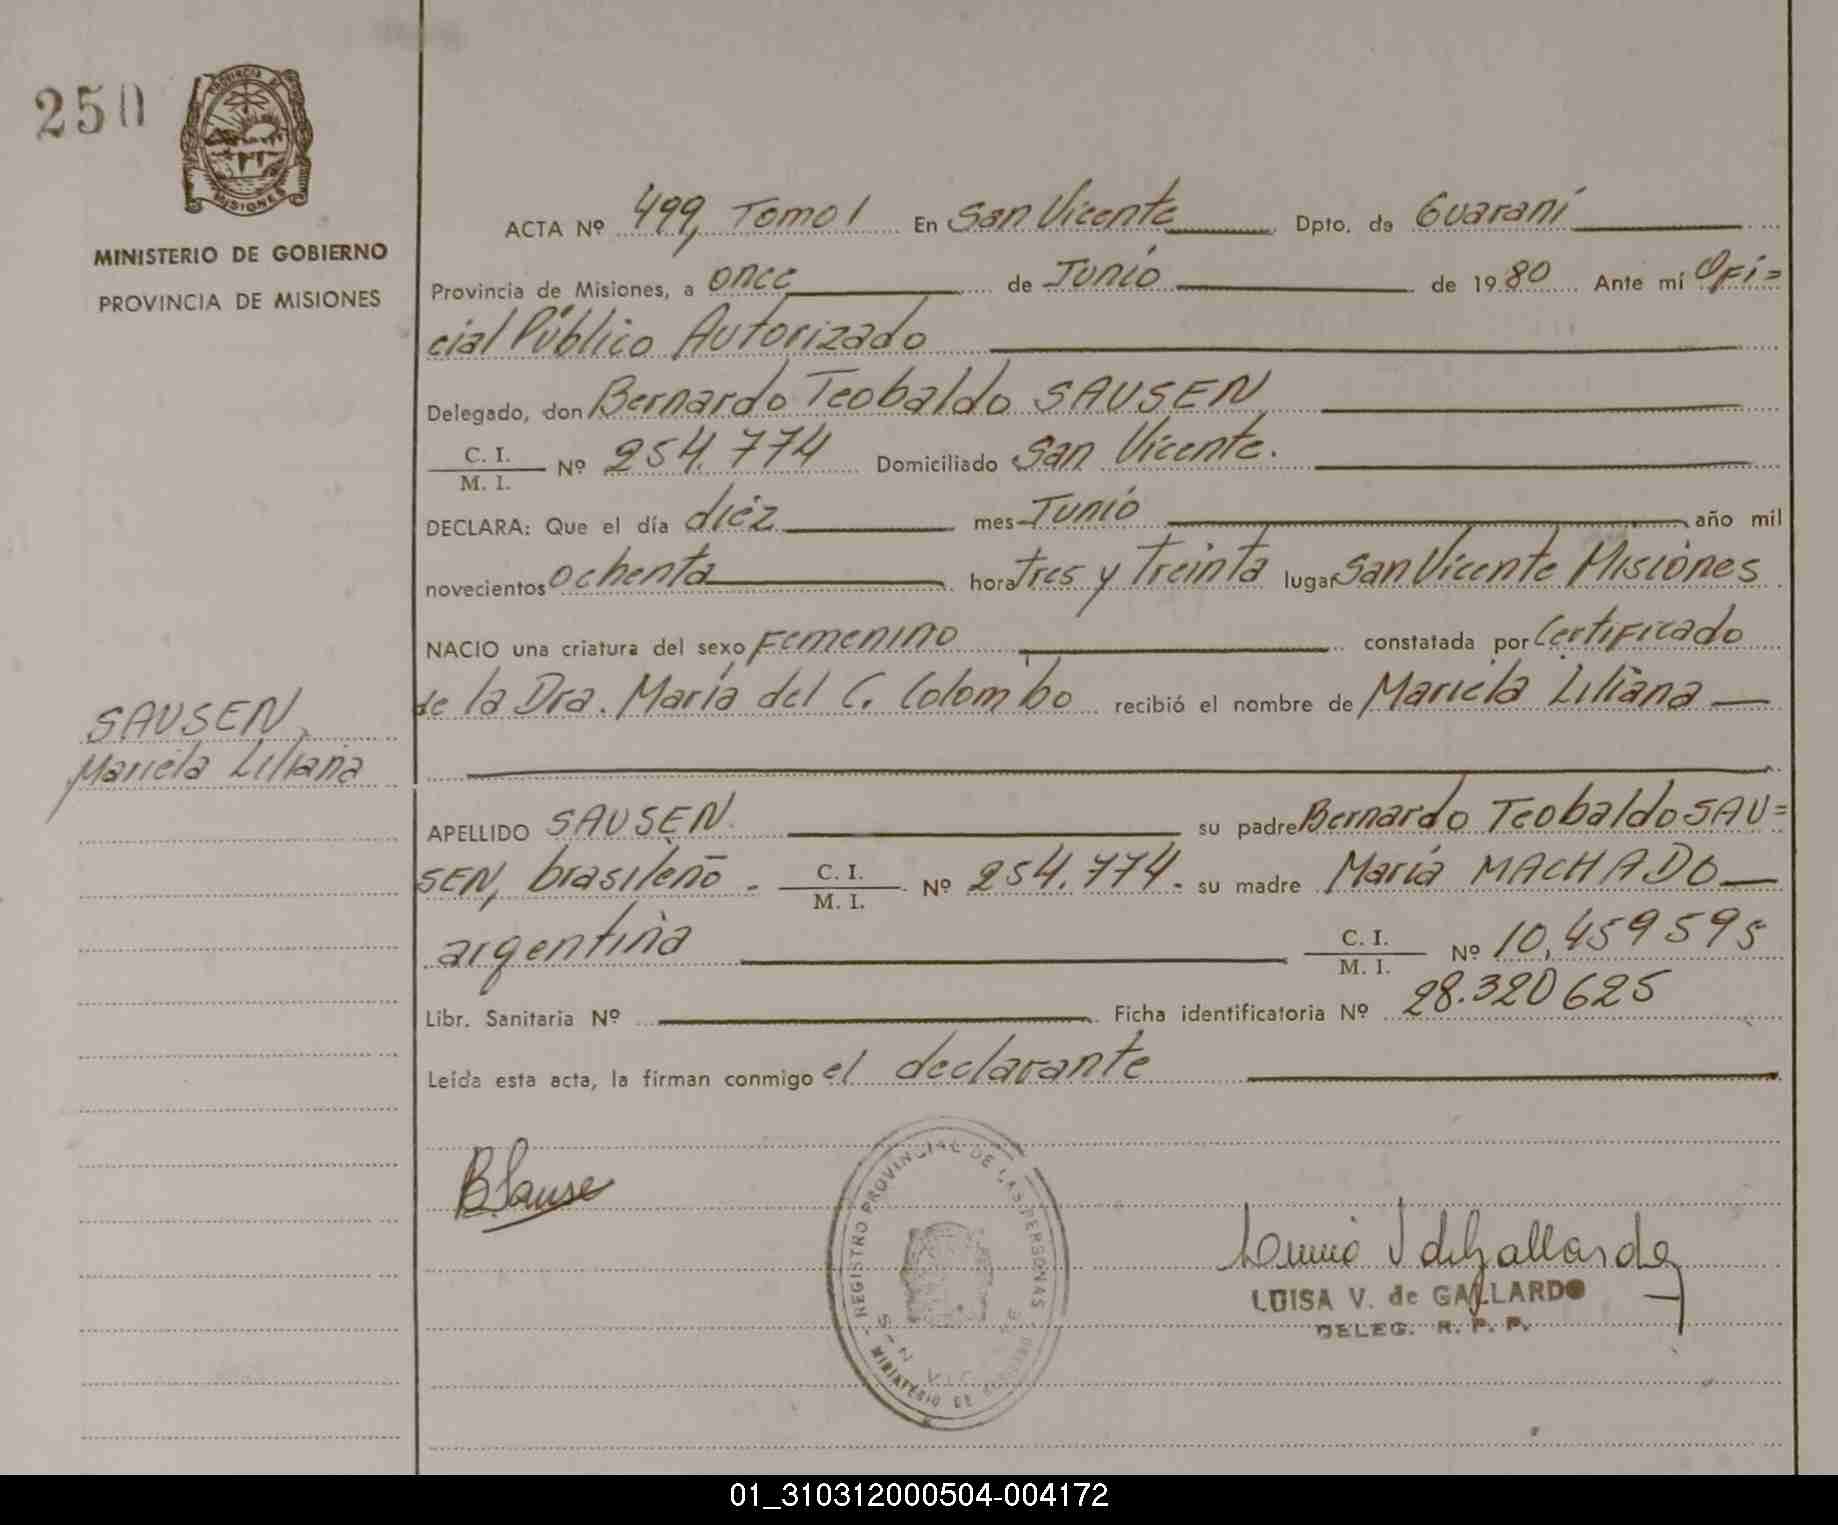 250
PROVINCIA DE
MISIONES
MINISTERIO DE GOBIERNO
PROVINCIA DE MISIONES
ACTA Nº 499, Tomo 1 En San Vicente Dpto. de Guaraní
Provincia de Misiones, a once de Junio de 1980 Ante mí Ofi=
cial Público Autorizado
Delegado, don Bernardo Teobaldo SAUSEN
C. I.
M. I. Nº 254.774 Domiciliado San Vicente.
DECLARA: Que el día diez mes Junio año mil
novecientos ochenta hora tres y treinta lugar San Vicente Misiones
NACIO una criatura del sexo Femenino constatada por Certificado
de la Dra. María del C. Colombo recibió el nombre de Mariela Liliana
SAUSEN,
Mariela Liliana
APELLIDO SAUSEN su padre Bernardo Teobaldo SAU=
SEN, brasileño - C. I.
M. I. Nº 254.774.- su madre María MACHADO
argentina C. I.
M. I. Nº 10,459595
Libr. Sanitaria Nº Ficha identificatoria Nº 28.320625
Leída esta acta, la firman conmigo el declarante
BSause
REGISTRO PROVINCIAL DE LAS PERSONAS
MINISTERIO DE
LUISA V. de GALLARDO
DELEG. R. P. P.
01_310312000504-004172